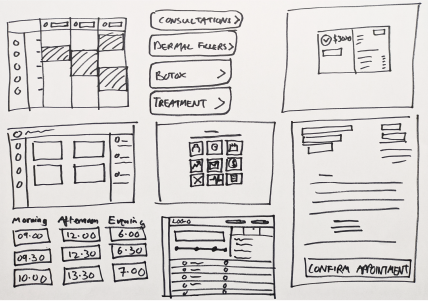 CONSULTATIONS
DERMAL FILLERS
BOTOX
TREATMENT
$3000
Morning Afternoon Evening
09.00 12.00 6.00
09.30 12.30 6.30
10.00 13.30 7.00
LOGO
CONFIRM APPOINTMENT